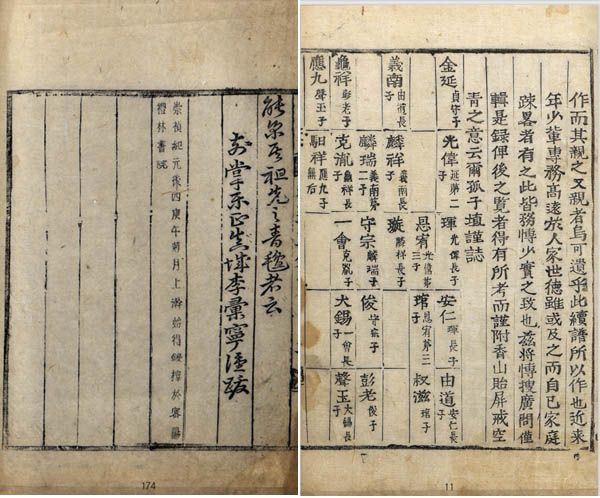 作而其親之又親者烏可遺乎此續譜所以作也近來
年少輩專務高遠於人家世德雖或及之而自已家庭
疎畧者有之此皆務博少實之致也兹將博搜廣問僅
輯是錄俾後之覽者得有所考而謹附香山貽屏戒空
青之意云爾孤子塡謹誌
金延 貞守子 光偉 延第二子 琿 光偉長子 安仁 琿長子 由道 安仁長子
思宥 光偉第三子 琯 思宥第三子 叔滋 琯子
義南 由道長子 麟祥 義南長子 璇 麟祥長子
麟瑞 義南第二子 守宗 麟瑞子 俊 守宗子 彭老 俊子
龜祥 彭老子 克胤 龜祥長子 一會 克胤子 大錫 一會長子 聲玉 大錫長子
應九 聲玉子 馹祥 應九子無后
11
祖先之青氊者云
掌 正眞城李彙寧謹跋
崇禎紀元後四庚午菊月上澣始得繡梓於密陽
禮林書院
174